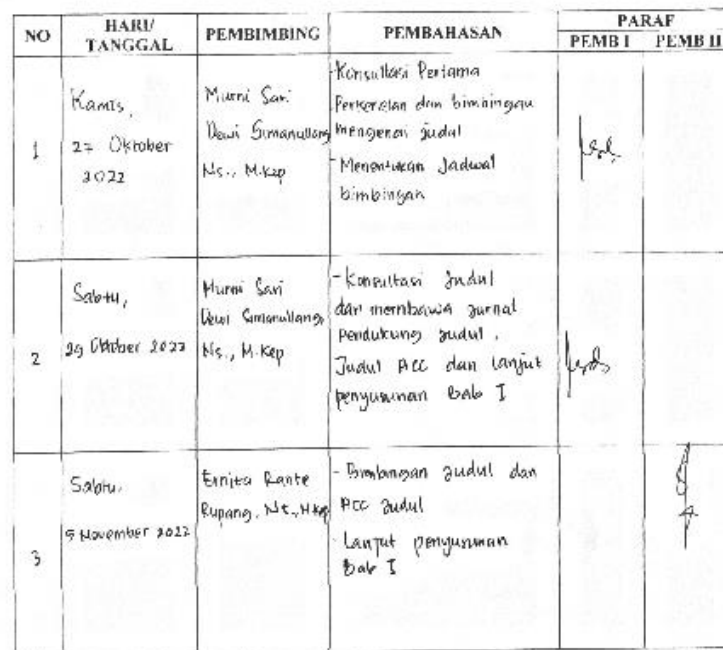 NO HARI/ TANGGAL PEMBIMBING PEMBAHASAN PARAF
PEMB I PEMB II
1
Kamis,
27 Oktober
2022
Murni Sari
Dewi Simanullang
Ns., M.Kep
- Konsultasi Pertama
Perkenalan dan bimbingan
mengenai judul
- Menentukan Jadwal
bimbingan
2
Sabtu,
29 Oktober 2022
Murni Sari
Dewi Simanullang
Ns., M.Kep
- Konsultasi Judul
dan membawa jurnal
pendukung judul.
Judul ACC dan lanjut
penyusunan Bab I
3
Sabtu,
5 November 2022
Ernita Rante
Rupang, Ns., M.Kep
- Bimbingan Judul dan
ACC Judul
- Lanjut penyusunan
Bab I